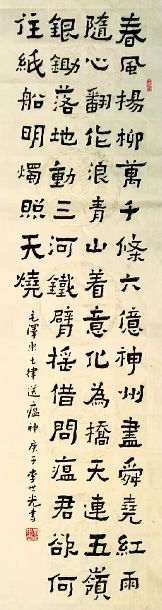 春風揚柳萬千條六億神州盡舜堯紅雨
隨心翻作浪青山着意化為橋天連五嶺
銀鋤落地動三河鐵臂搖借問瘟君欲何
往紙船明燭照天燒
毛澤東七律送瘟神 庚子李世光書